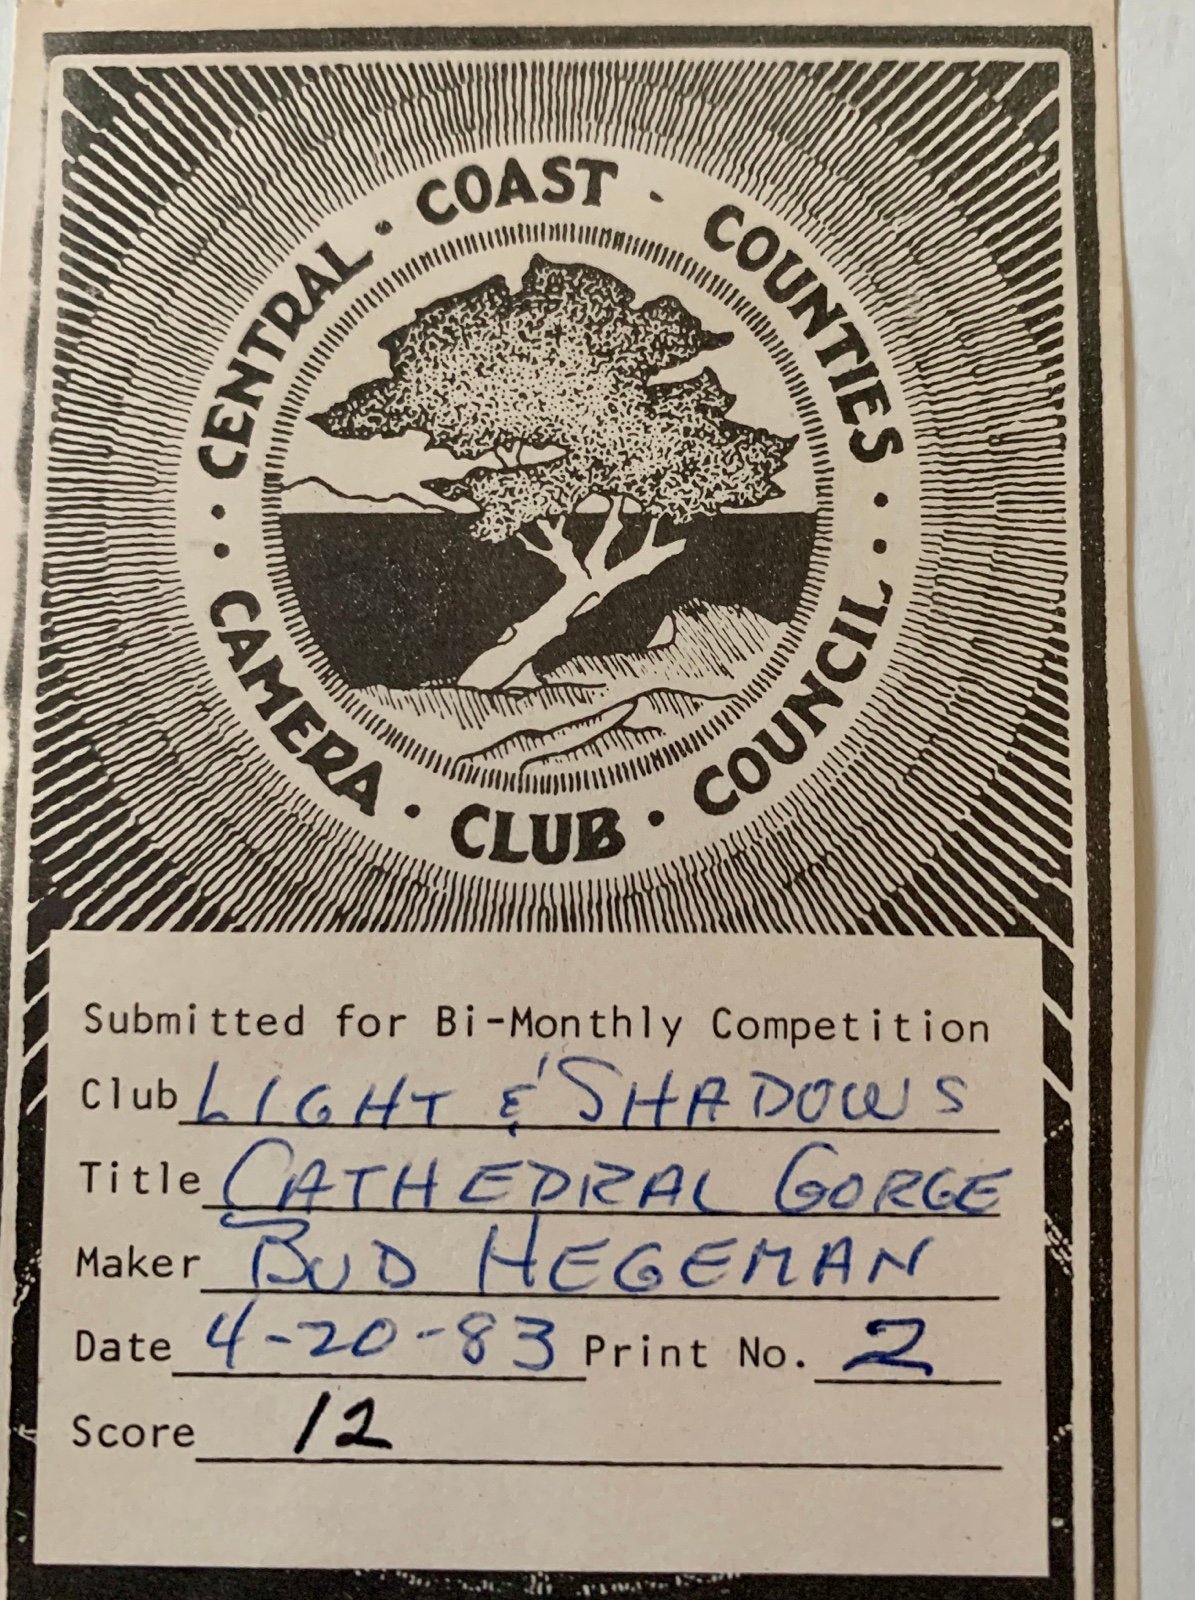 · CENTRAL · COAST · COUNTIES ·
· CAMERA · CLUB · COUNCIL ·
Submitted for Bi-Monthly Competition
Club LIGHT & SHADOWS
Title CATHEDRAL GORGE
Maker BUD HEGEMAN
Date 4-20-83 Print No. 2
Score 12